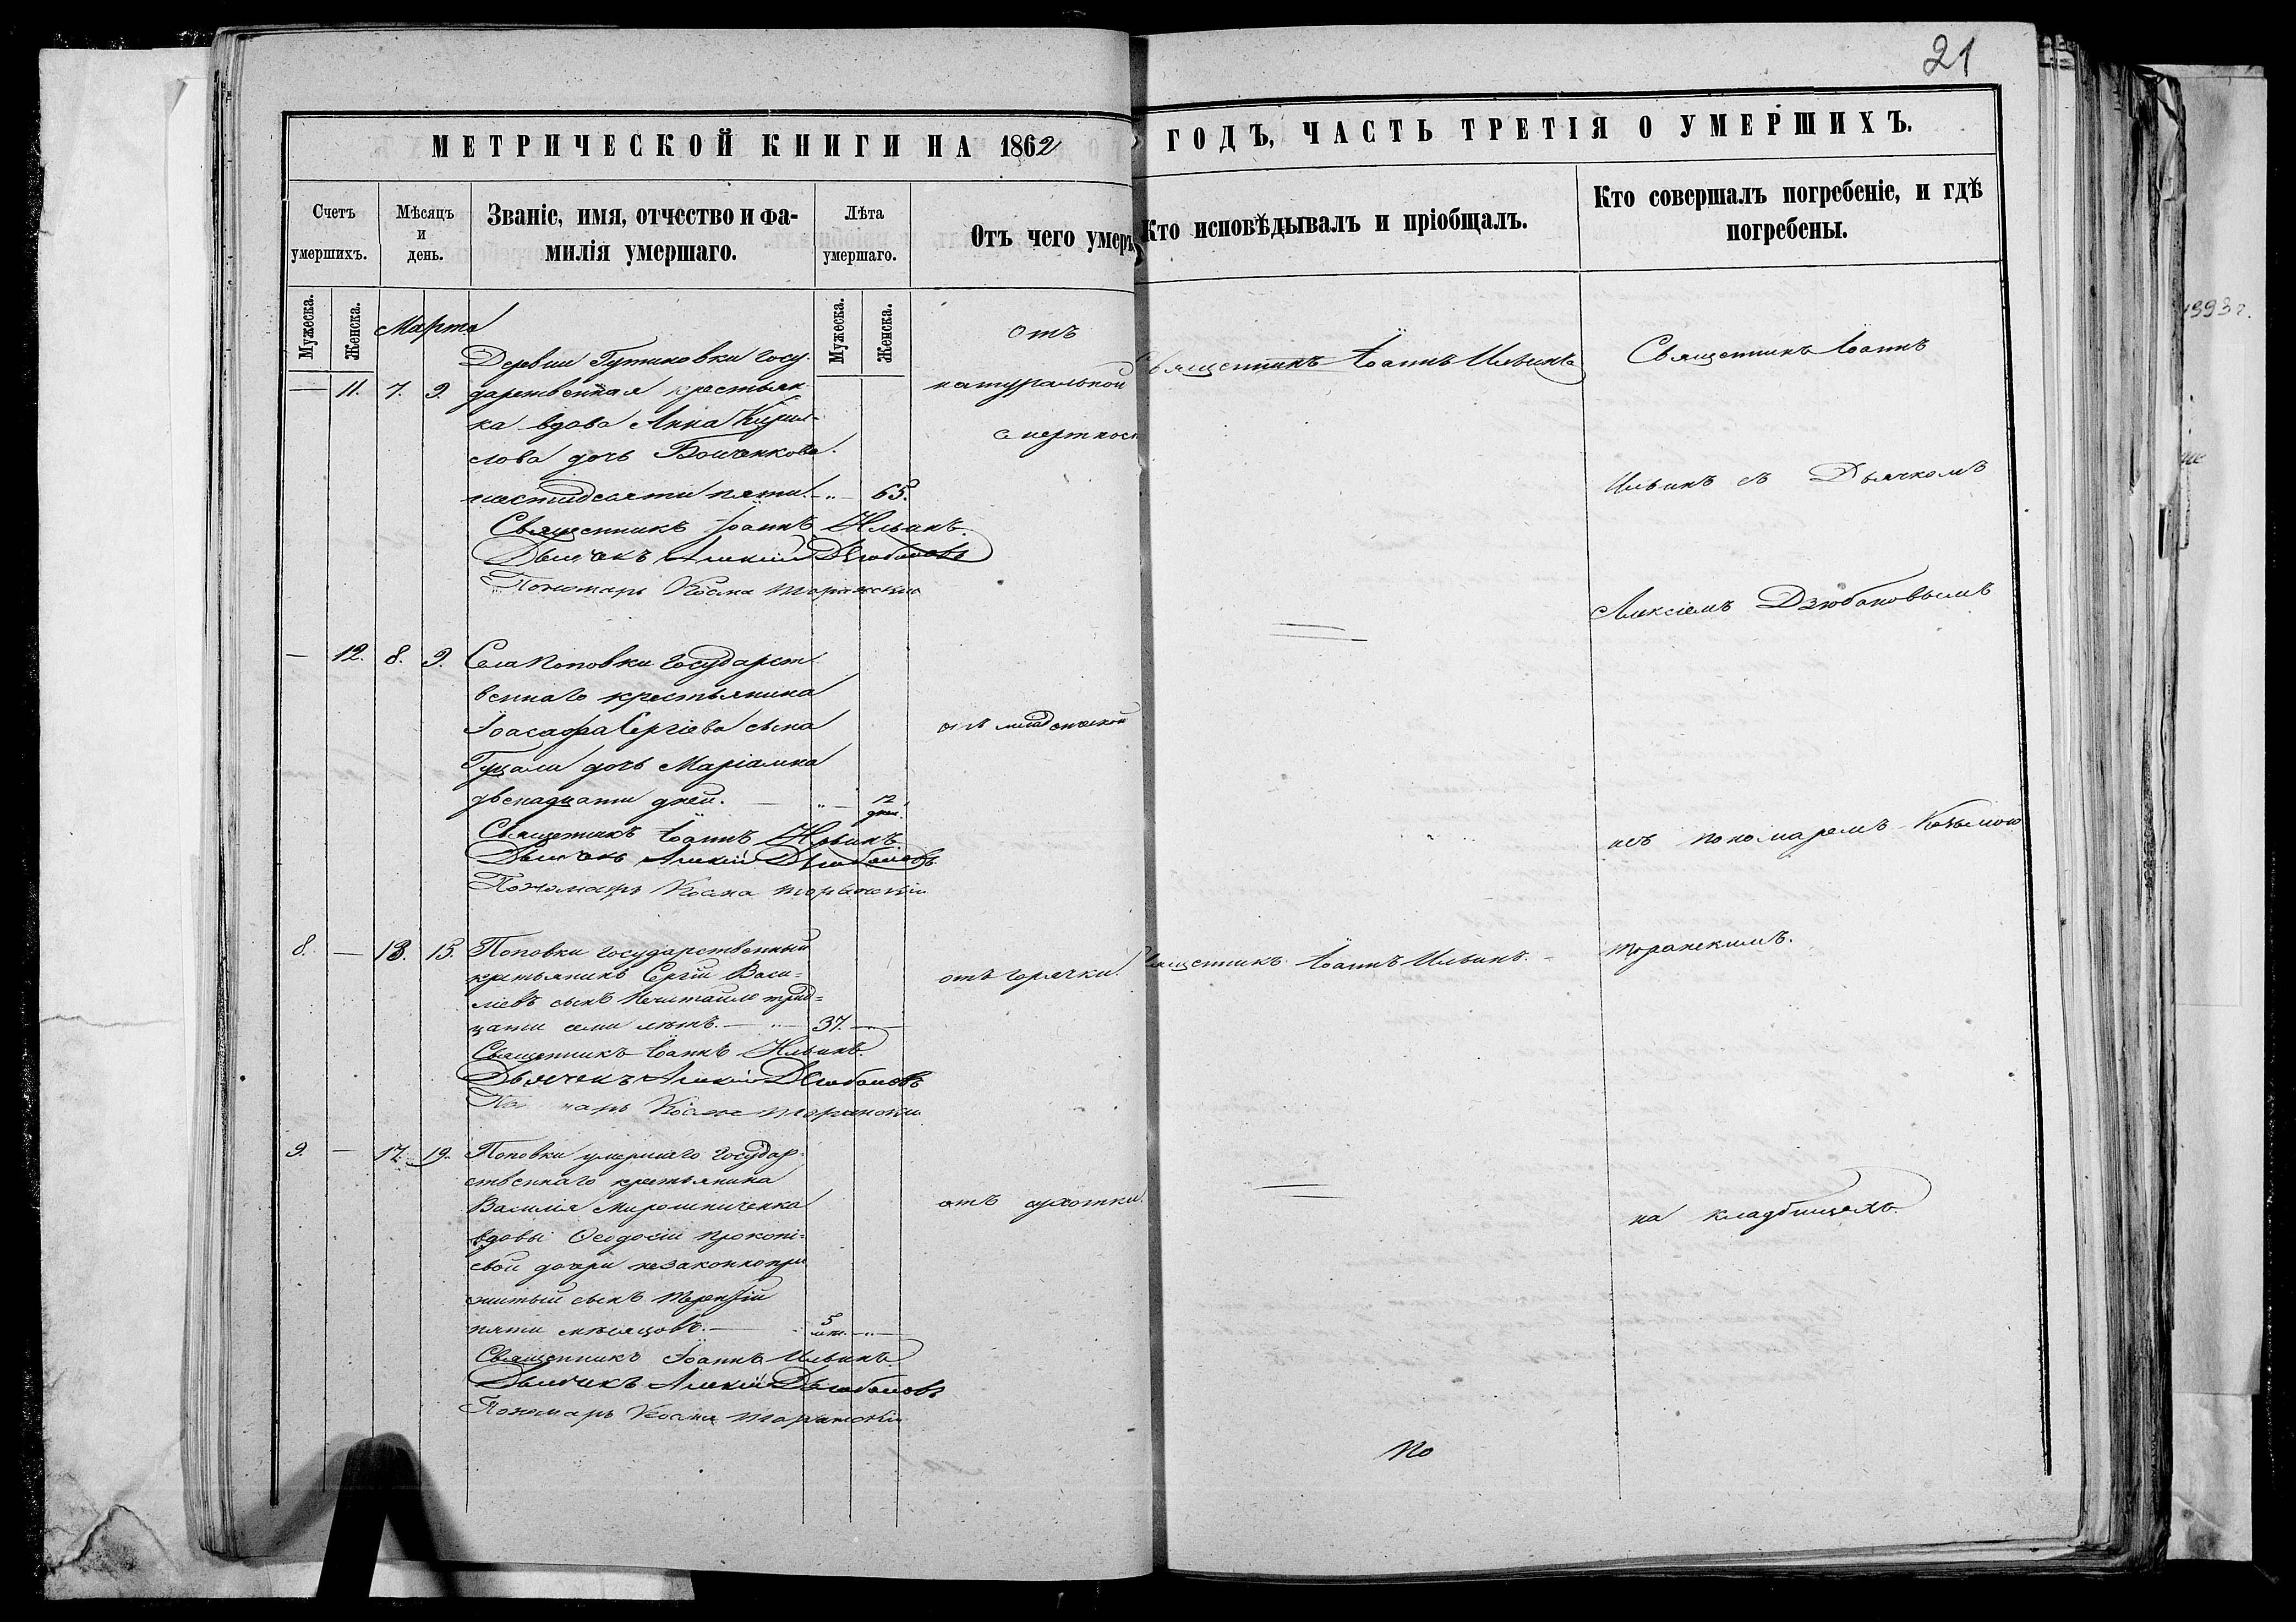 21
МЕТРИЧЕСКОЙ КНИГИ НА 1862
ГОДЪ, ЧАСТЬ ТРЕТІЯ О УМЕРШИХЪ.
Счетъ умершихъ.
Мѣсяцъ и день.
Званіе, имя, отчество и фа-
милія умершаго.
Лѣта умершаго.
Отъ чего умеръ
Кто исповѣдывалъ и пріобщалъ.
Кто совершалъ погребеніе, и гдѣ
погребены.
Мужеска.
Женска.
Мужеска.
Женска.
Марта
— 11. 7. 9.
Деревни Гутиковки госу-
дарственная крестьян-
ка вдова Анна Кирил-
лова дочь Бойченкова.
шестидесяти пяти. — 65.
Священникъ Іоаннъ Ильинъ.
Дьячекъ Алексій Дзюбановъ
Пономарь Косма Торанскій
отъ
натуральной
смертнос
Священникъ Іоаннъ Ильинъ
Священникъ Іоаннъ
Ильинъ съ Дьячкомъ
Алексіемъ Дзюбановымъ
— 12. 8. 9.
Села Поповки государст
веннаго крестьянина
Іоасафа Сергіева сына
дочь Маріамна
двенадцати дней. — 12 дней.
Священникъ Іоаннъ Ильинъ.
Дьячекъ Алексій Дзюбановъ
Пономарь Косма Торанскій
отъ младенческой
и съ пономаремъ Козьмою
Торанскимъ.
8. — 13. 15.
Поповки государственный
крестьянинъ Сергій Васи-
ліевъ сынъ Нечитайло трид-
цати семи лѣтъ. — 37. —
Священникъ Іоаннъ Ильинъ.
Дьячекъ Алексій Дзюбановъ
Пономарь Косма Торанскій
отъ горячки.
Священникъ Іоаннъ Ильинъ.
9. — 17. 19.
Поповки умершаго государ-
ственнаго крестьянина
Василія Мирошниченка
вдовы Ѳеодосіи Прокопі-
евой дочери незаконнопри
житый сынъ Терентій
пяти мѣсяцовъ. — 5 мѣс. —
Священникъ Іоаннъ Ильинъ
Дьячекъ Алексій Дзюбановъ
Пономарь Косма Торанскій
отъ сухотки.
на кладбищахъ.
По
1993 г.